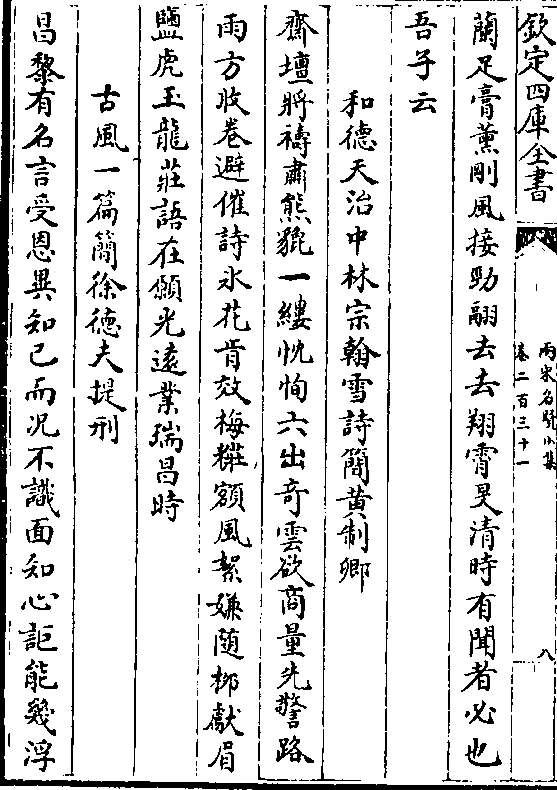 欽定四庫全書
兩宋名賢小集
卷二百三十一
八
蘭足膏薰剛風接勁翮去去翔霄旻清時有聞者必也
吾子云
和德天治中林宗翰雪詩簡黃制卿
齋壇將禱肅熊羆一縷忱恂六出奇雲欲商量先警路
雨方收卷避催詩氷花肯效梅粧額風絮嫌随栁獻眉
鹽虎玉龍莊語在願光遠業瑞昌時
古風一篇簡徐德夫提刑
昌黎有名言受恩異知己而况不識面知心詎能幾浮